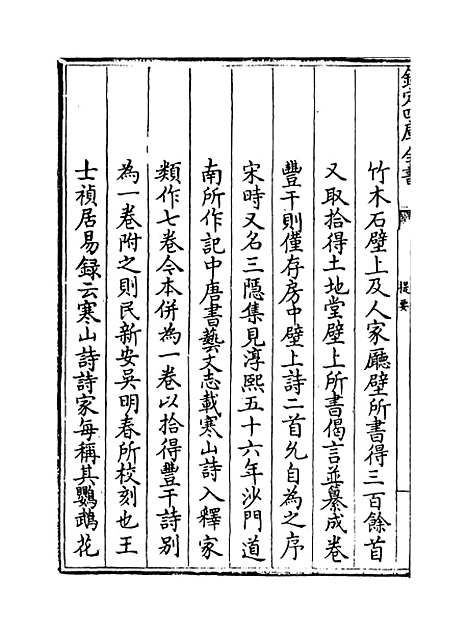 欽定四庫全書
提要
竹木石壁上及人家廳壁所書得三百餘首
又取拾得土地堂壁上所書偈言並纂成卷
豐干則僅存房中壁上詩二首允自為之序
宋時又名三隠集見淳熙五十六年沙門道
南所作記中唐書藝文志載寒山詩入釋家
類作七卷今本併為一卷以拾得豐干詩别
為一卷附之則民新安吳明春所校刻也王
士禎居易録云寒山詩詩家每稱其鸚鵡花